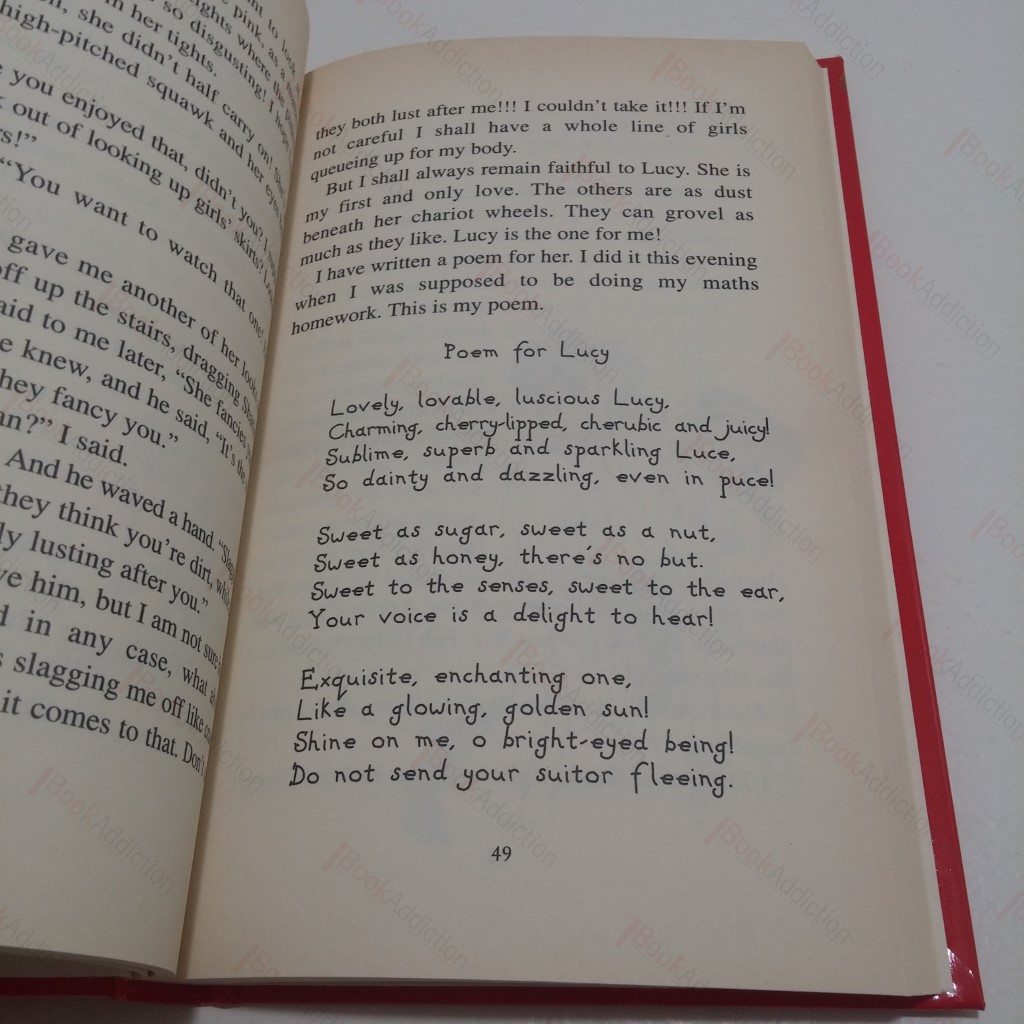 nt to look
pink, as a
ghts where the
so disgusting! I hope
in her tights.
n, she didn't half carry on! She
high-pitched squawk and her eyes
e you enjoyed that, didn't you?
k out of looking up girls' skirts?
rs!"
"You want to watch that one!
gave me another of her looks
off up the stairs, dragging
aid to me later, "She fancies
e knew, and he said, "It's the
hey fancy you."
an?" I said.
And he waved a hand.
they think you're dirt, while
ly lusting after you."
ve him, but I am not sure
d in any case, what
s slagging me off like
it comes to that. Don't
they both lust after me!!! I couldn't take it!!! If I'm
not careful I shall have a whole line of girls
queueing up for my body.
But I shall always remain faithful to Lucy. She is
my first and only love. The others are as dust
beneath her chariot wheels. They can grovel as
much as they like. Lucy is the one for me!
I have written a poem for her. I did it this evening
when I was supposed to be doing my maths
homework. This is my poem.
Poem for Lucy
Lovely, lovable, luscious Lucy,
Charming, cherry-lipped, cherubic and juicy!
Sublime, superb and sparkling Luce,
So dainty and dazzling, even in puce!
Sweet as sugar, sweet as a nut,
Sweet as honey, there's no but.
Sweet to the senses, sweet to the ear,
Your voice is a delight to hear!
Exquisite, enchanting one,
Like a glowing, golden sun!
Shine on me, o bright-eyed being!
Do not send your suitor fleeing.
49